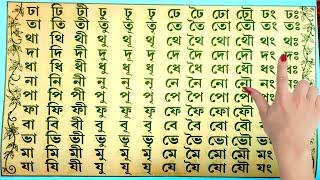 ঢা ঢি ঢী ঢু ঢূ ঢৃ ঢে ঢৈ ঢো ঢৌ ঢং ঢঃ
তা তি তী তু তূ তৃ তে তৈ তো তৌ তং তঃ
থা থি থী থু থূ থৃ থে থৈ থো থৌ থং থঃ
দা দি দী দু দূ দৃ দে দৈ দো দৌ দং
ধা ধি ধী ধু ধূ ধৃ ধে ধৈ ধো ধৌ ধং
না নি নী নু নূ নৃ নে নৈ নো নৌ
পা পি পী পু পূ পৃ পে পৈ পো পৌ
ফা ফি ফী ফু ফূ ফৃ ফে ফৈ ফো ফৌ
বা বি বী বু বূ বৃ বে বৈ বো বৌ
ভা ভি ভী ভু ভূ ভৃ ভে ভৈ ভো ভৌ
মা মি মী মু মূ মৃ মে মৈ মো মৌ মং
যা যি যী যু যূ যৃ যে যৈ যো যৌ যং